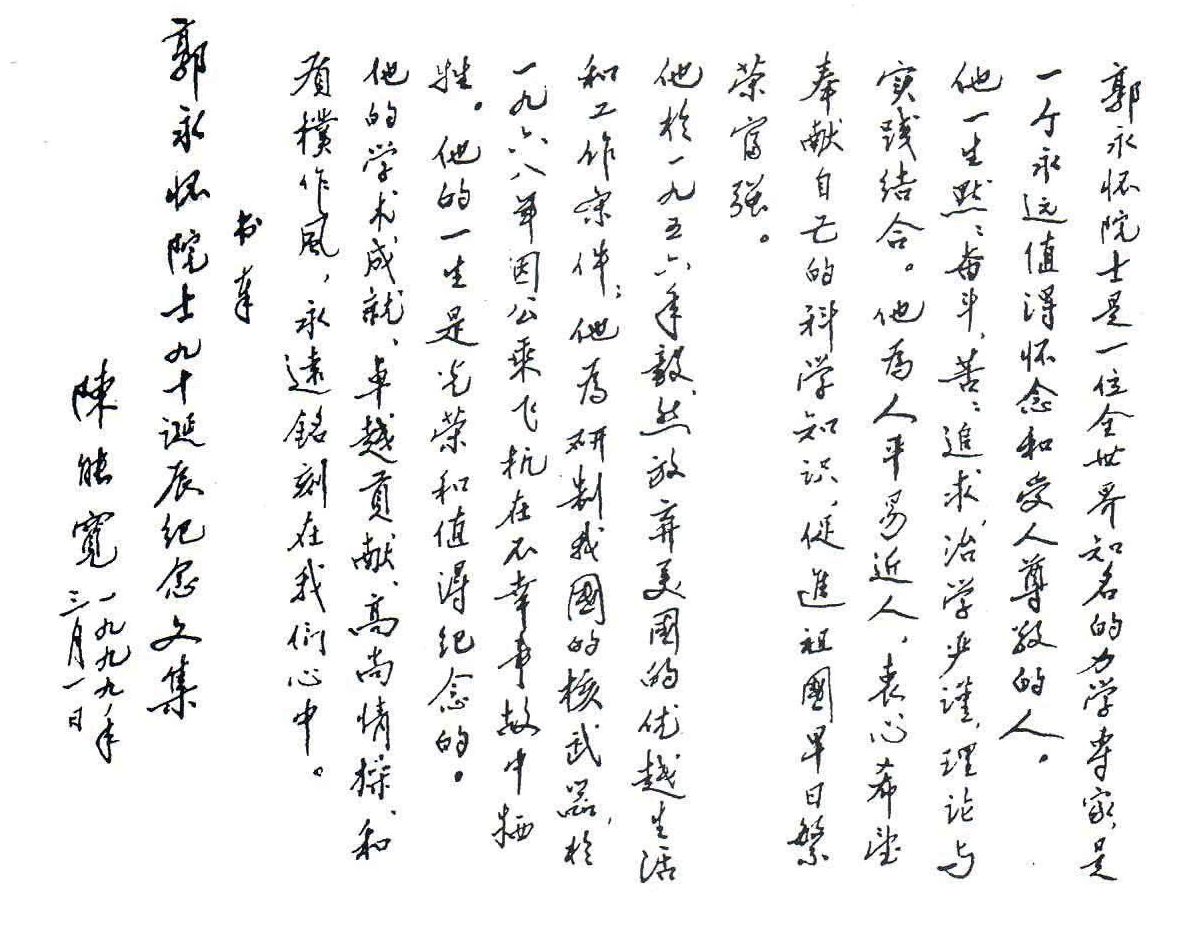 郭永怀院士是一位全世界知名的力学専家，是
一个永远值得怀念和受人尊敬的人。
他一生默默奋斗，苦苦追求，治学严谨，理论与
实践结合。他為人平易近人，衷心希望
奉献自己的科学知识，促進祖國早日繁
荣富强。
他於一九五六年毅然放弃美國的优越生活
和工作条件；他為研制我國的核武器，於
一九六八年因公乘飞机在不幸事故中牺
牲。他的一生是光荣和值得纪念的。
他的学术成就、卓越貢献、高尚情操、和
質樸作風，永遠銘刻在我们心中。
书奉
郭永怀院士九十诞辰纪念文集
陳能寬
一九九九年
三月一日